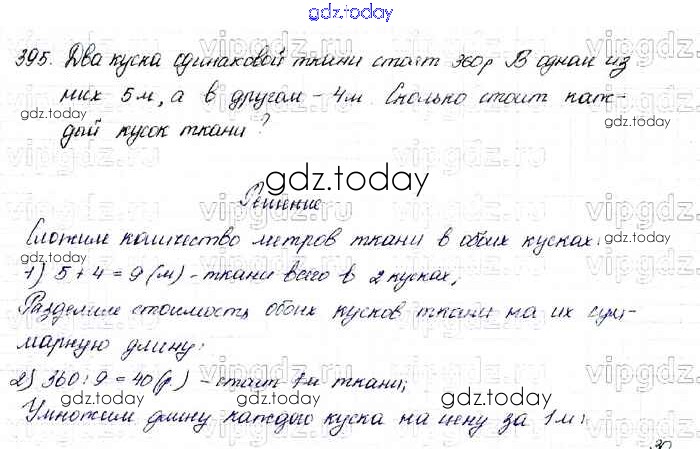 gdz.today
395. Два куска одинаковой ткани стоят 360р В одном из
них 5м, а в другом - 4м. Сколько стоит каж-
дый кусок ткани?
gdz.today
Решение
Сложим количество метров ткани в обоих кусках:
1) 5 + 4 = 9 (м) - ткани всего в 2 кусках;
Разделим стоимость обоих кусков ткани на их сум-
марную длину:
2) 360 : 9 = 40 (р.) - стоит 1м ткани;
Умножим длину каждого куска на цену за 1м: